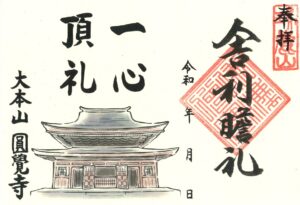 奉拝
舎利瞻礼
令和 年 月 日
一心
頂礼
大本山 圓覺寺